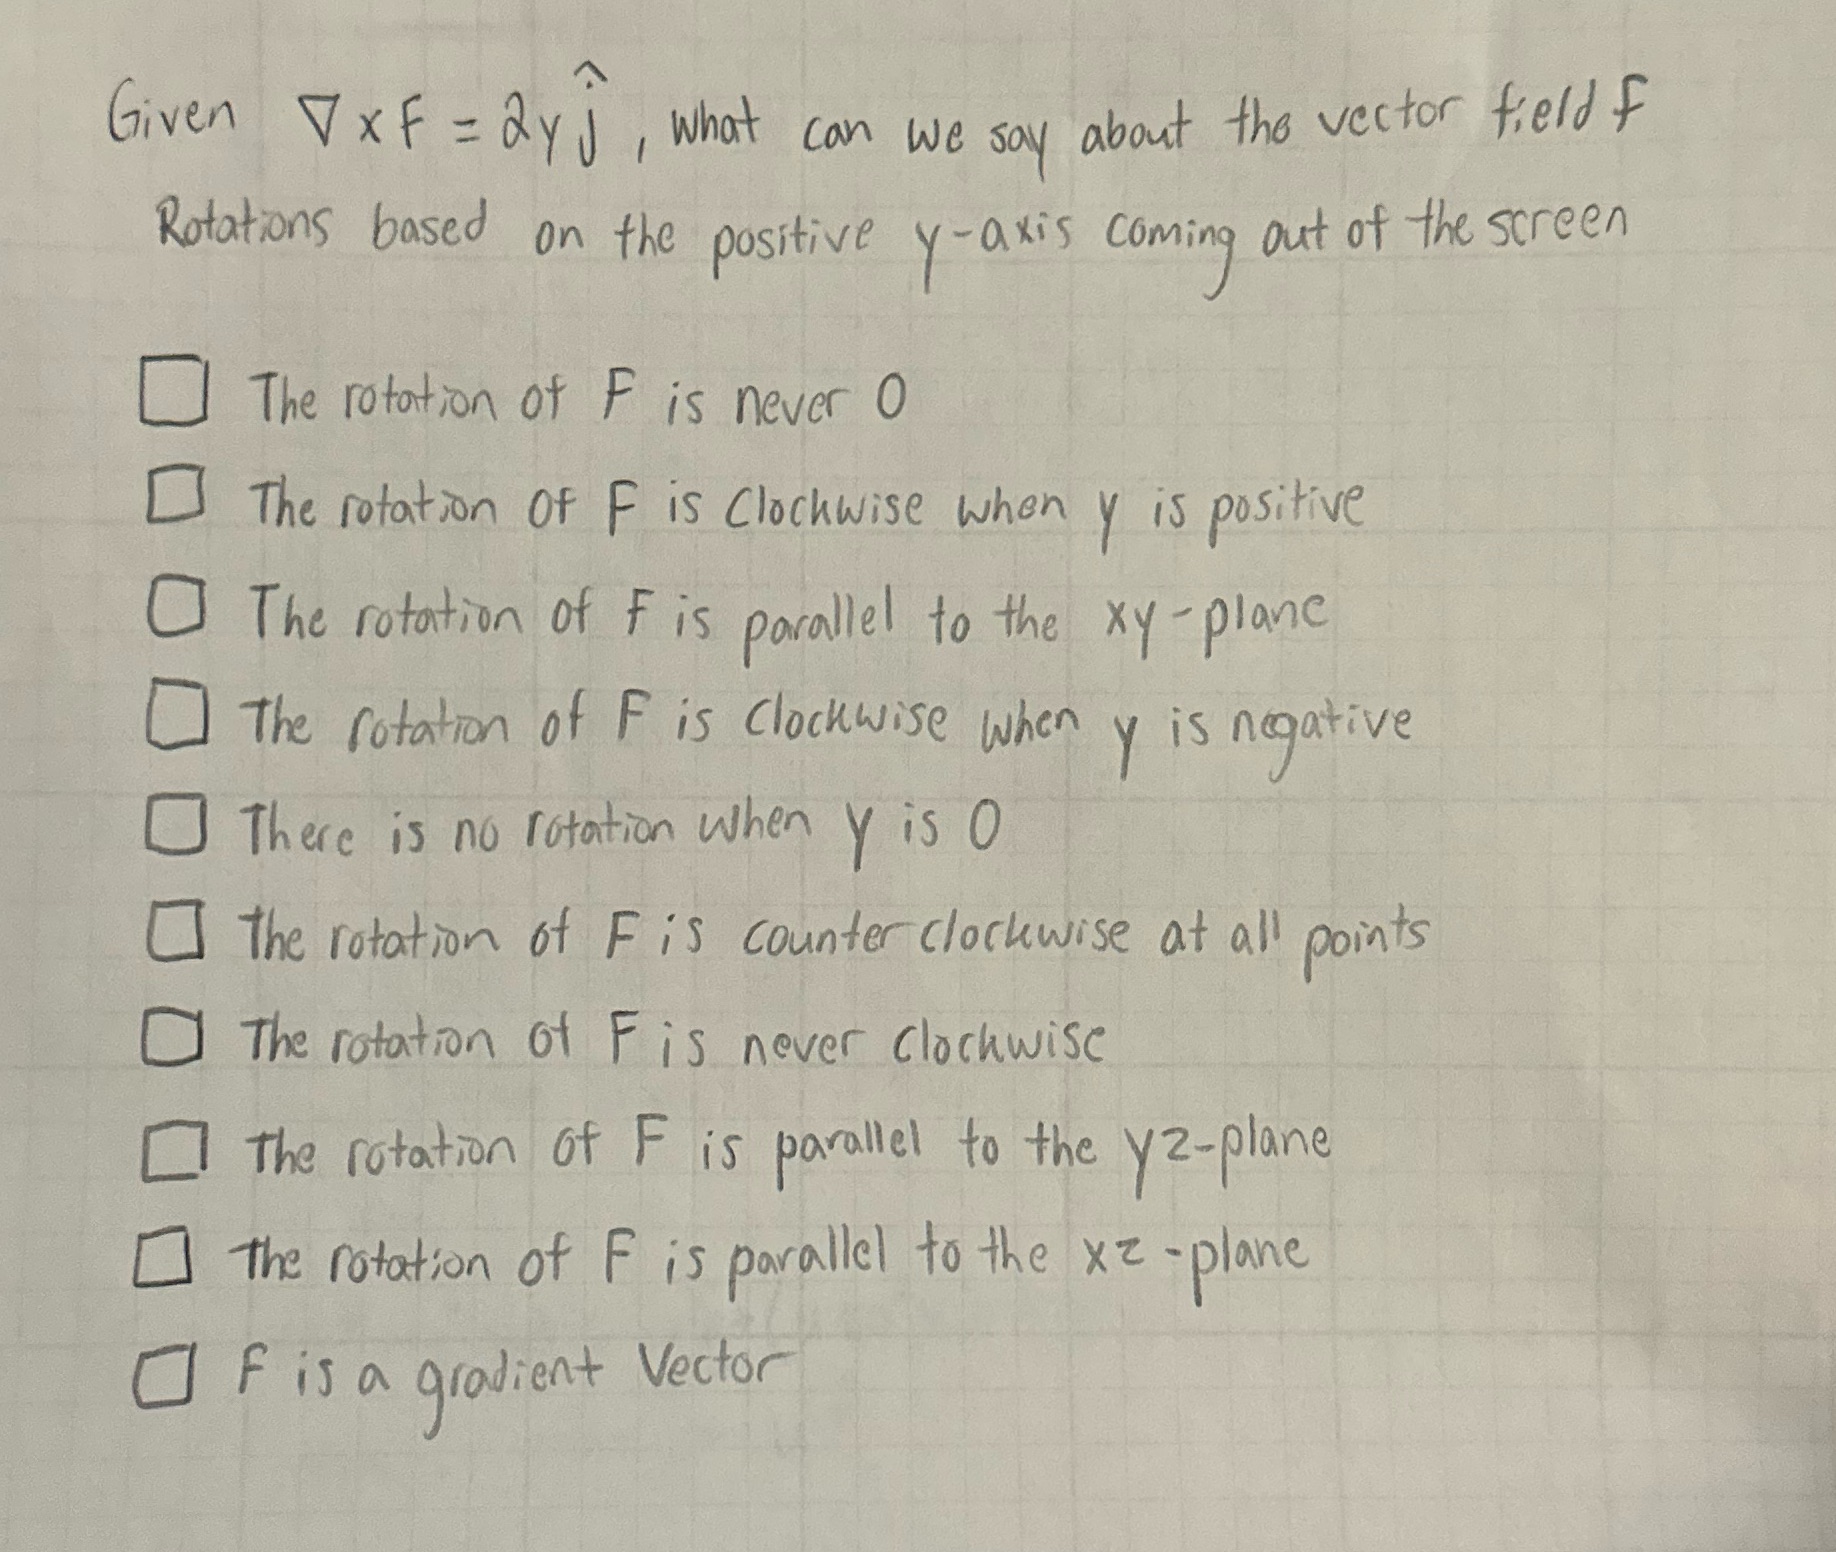 Given ∇ x F = 2y ĵ, what can we say about the vector field F
Rotations based on the positive y-axis coming out of the screen
The rotation of F is never 0
The rotation of F is clockwise when y is positive
The rotation of F is parallel to the xy-plane
The rotation of F is clockwise when y is negative
There is no rotation when y is 0
The rotation of F is counter clockwise at all points
The rotation of F is never clockwise
The rotation of F is parallel to the yz-plane
The rotation of F is parallel to the xz-plane
F is a gradient vector